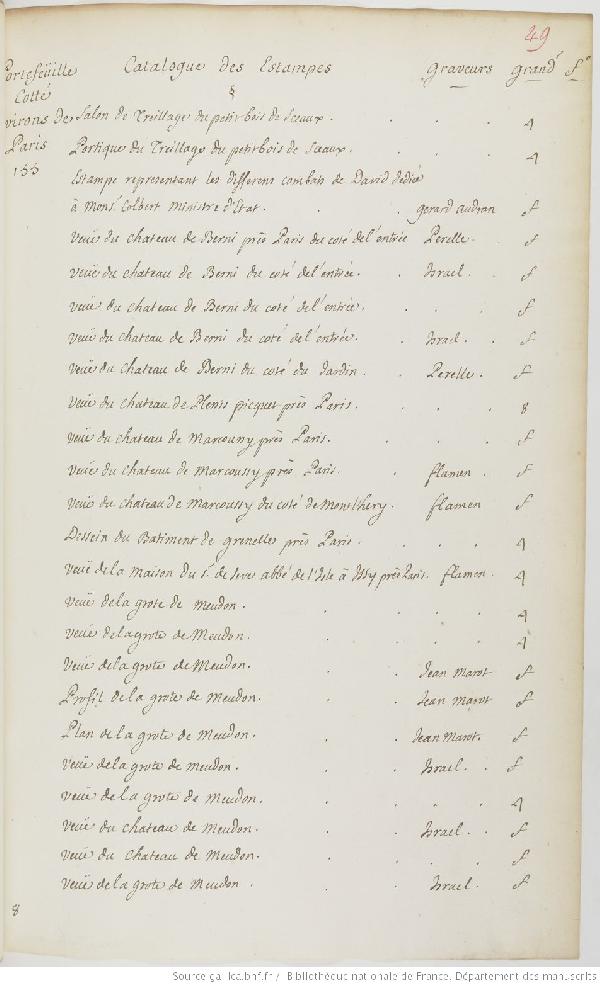 49
Portefeüille Catalogue des Estampes graveurs grandr fo
Cotté §
virons de Salon de Treillage du petit bois de Sceaux. 4
Paris Portique du Treillage du petit bois de Sceaux. 4
155 Estampe representant les differens combats de David dedié
à Monsr. Colbert ministre d'Etat. gerard audran f
Veüe du chateau de Berni près Paris du coté de l'entrée Perelle. f
Veüe du chateau de Berni du coté de l'entrée. Israel. f
Veüe du chateau de Berni du coté de l'entrée. f
Veüe du chateau de Berni du coté de l'entrée. Israel. f
Veüe du chateau de Berni du coté du Jardin. Perelle. f
Veüe du chateau de Plessis picquet près Paris. 8
Veüe du chateau de Marcoussy près Paris. f
Veüe du chateau de Marcoussy près Paris. flamen. f
Veüe du chateau de Marcoussy du coté de Montlhery. flamen f
Dessein du Batiment de grenelles près Paris. 4
Veüe de la maison du S. de Seve abbé de l'Isle à Issy près Paris. flamen. 4
Veüe de la grote de Meudon. 4
Veüe de la grote de Meudon. 4
Veüe de la grote de Meudon. Jean Marot f
Profil de la grote de Meudon. Jean Marot f
Plan de la grote de Meudon. Jean Marot. f
Veüe de la grote de Meudon. Israel. f
Veüe de la grote de Meudon. 4
Veüe du chateau de Meudon. Israel. f
Veüe du chateau de Meudon. f
Veüe de la grote de Meudon. Israel. f
8
Source gallica.bnf.fr / Bibliothèque nationale de France, Département des manuscrits